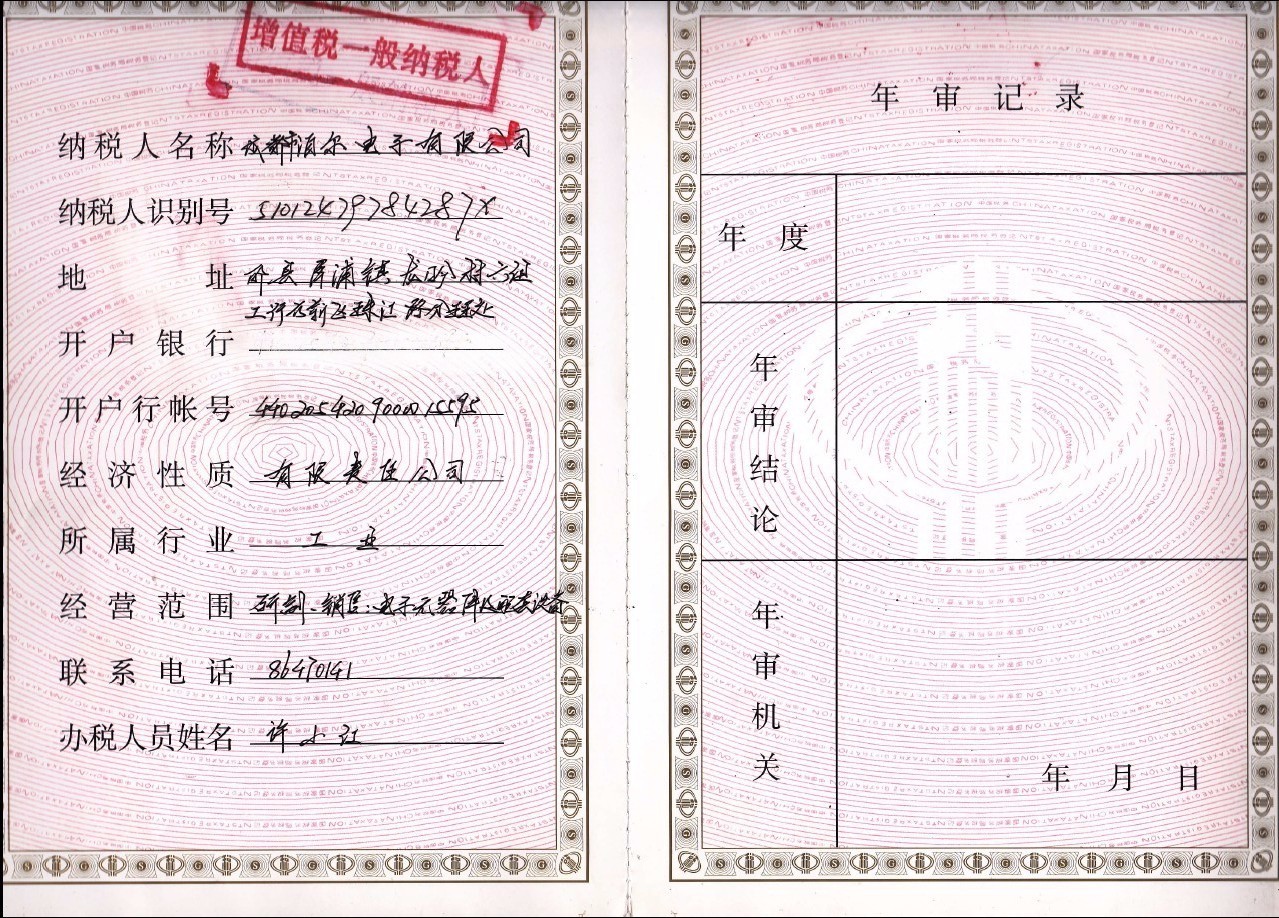 增值税一般纳税人
纳税人名称 成都泊尔电子有限公司
纳税人识别号 51012479784287X
地址 郫县犀浦镇 村六组
工行
开户银行
开户行帐号 4402054209000015595
经济性质 有限责任公司
所属行业 工业
经营范围 研制、销售：电子元器件及配套设备
联系电话 86470141
办税人员姓名 许小红
年审记录
年度
年审结论
年审机关
年 月 日